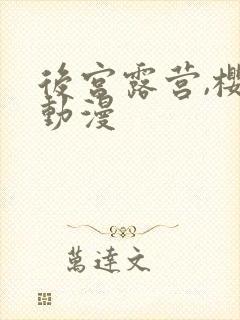 後宮露营,櫻
動漫
萬達文